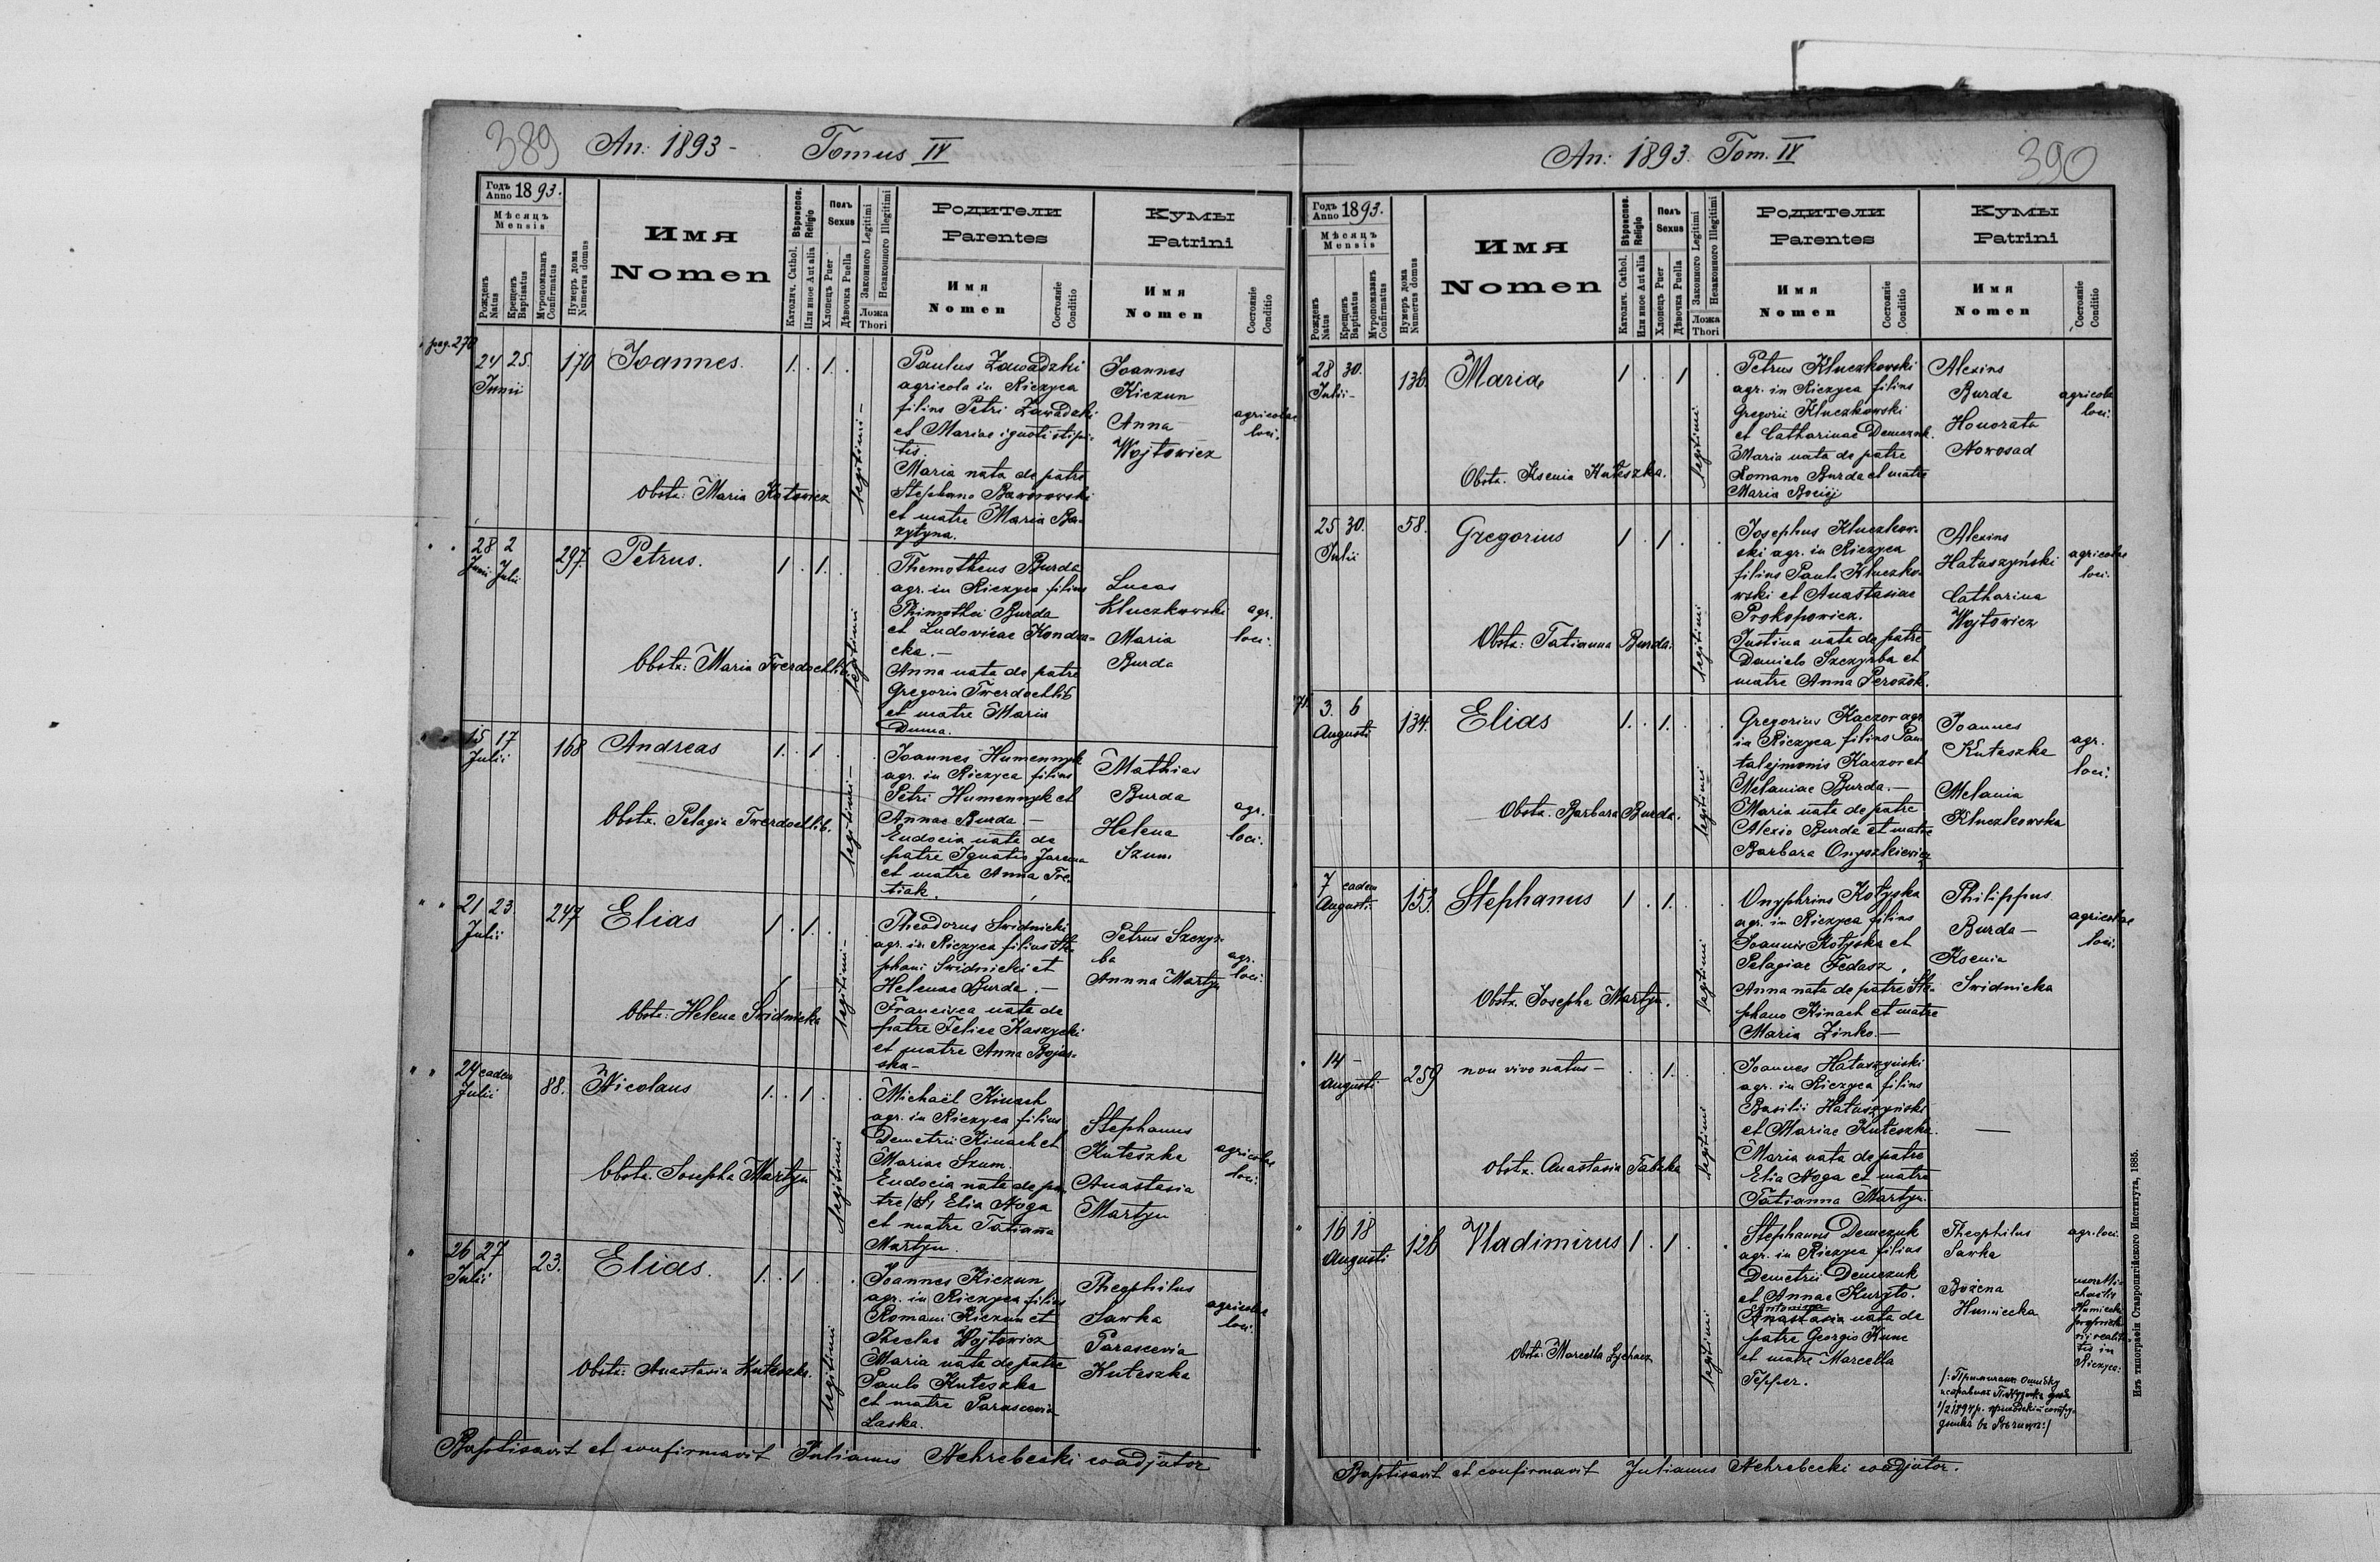 389 An: 1893 - Tomus IV
Годъ Anno 1893.
Мѣсяцъ Mensis
Рожденъ Natus
Крещенъ Baptisatus
Мѵропомазанъ Confirmatus
Нумеръ дома Numerus domus
Имя Nomen
Вѣроиспов. Religio
Католич. Cathol.
Или иное Aut alia
Полъ Sexus
Хлопецъ Puer
Дѣвочка Puella
Законного Legitimi
Незаконного Illegitimi
Ложа Thori
Родители Parentes
Имя Nomen
Состояніе Conditio
Кумы Patrini
Имя Nomen
Состояніе Conditio
pag. 270
24 25. Junii 170 Joannes. 1. . 1. .
legitimi -
Paulus Zawadzki
agricola in Riczyca
filius Petri Zawadzki
et Mariae ignoti stipi-
tis.
Maria nata de patre
Stephano Baworowski
et matre Maria Ba-
zytyna.
Joannes
Kiczun
Anna
Wojtowicz
agricolae
loci.
Obstx: Maria Katowicz
28 Junii 2 Julii 297. Petrus. 1 . 1. .
legitimi
Themotheus Burda
agr. in Riczyca filius
Thimothei Burda
et Ludovicae Kondra-
cka. -
Anna nata de patre
Gregorio Twerdochlib
et matre Maria
Duma.
Lucas
Kluczkowski
Maria
Burda
agr.
loci.
Obstx: Maria Twerdochlib
15 17 Julii 168 Andreas 1. . 1 .
legitimi -
Joannes Humennyk
agr. in Riczyca filius
Petri Humennyk et
Annae Burda. -
Eudocia nata de
patre Ignatio Jarema
et matre Anna Tre-
tiak.
Mathias
Burda
Helena
Szum
agr.
loci.
Obstx. Pelagia Twerdochlib.
21 23. Julii 247 Elias 1 . 1. .
legitimi -
Theodorus Swidnicki
agr. in Riczyca filius Ste-
phani Swidnicki et
Helenae Burda. -
Francisca nata de
patre Felice Kaszycki
et matre Anna Bojar-
ska -
Petrus Szczyr-
ba
Annna Martyn
agr.
loci:
Obstx: Helena Swidnicka
24 eadem Julii 88. Nicolaus 1. . 1 .
legitimi
Michaël Kinach
agr. in Riczyca filius
Demetrii Kinach et
Mariae Szum.
Eudocia nata de pa-
tre Elia Noga
et matre Tatianna
Martyn.
Stephanus
Kuteszka
Anastasia
Martyn
agricolae
loci:
Obstx. Josepha Martyn
26 27 Julii 23. Elias. 1. . 1 .
legitimi
Joannes Kiczun
agr. in Riczyca filius
Romani Kiczun et
Theclae Wojtowicz
Maria nata de patre
Paulo Kuteszka
et matre Parascevia
Laska.
Theophilus
Sawka
Parascevia
Kuteszka
agricolae
loci.
Obstx: Anastasia Kuteszka.
Baptisavit et confirmavit Julianus Nehrebecki coadjutor
An: 1893. Tom. IV 390
Годъ Anno 1893.
Мѣсяцъ Mensis
Рожденъ Natus
Крещенъ Baptisatus
Мѵропомазанъ Confirmatus
Нумеръ дома Numerus domus
Имя Nomen
Вѣроиспов. Religio
Католич. Cathol.
Или иное Aut alia
Полъ Sexus
Хлопецъ Puer
Дѣвочка Puella
Законного Legitimi
Незаконного Illegitimi
Ложа Thori
Родители Parentes
Имя Nomen
Состояніе Conditio
Кумы Patrini
Имя Nomen
Состояніе Conditio
28 30. Julii - 136. Maria 1 . . 1
legitimi
Petrus Kluczkowski
agr. in Riczyca filius
Gregorii Kluczkowski
et Catharinae Demczuk.
Maria nata de patre
Romano Burda et matre
Maria
Alexius
Burda
Honorata
Nowosad
agricolae
loci.
Obstx. Ksenia Kuteszka.
25 30. Julii 58. Gregorius 1 . 1 .
legitimi
Josephus Kluczkow-
ski agr. in Riczyca
filius Pauli Kluczko-
wski et Anastasiae
Prokopowicz.
Justina nata de patre
Danielo Szczyrba et
matre Anna Perożok.
Alexius
Hałuszyński
Catharina
Wojtowicz
agricolae
loci.
Obstx: Tatianna Burda.
3. 6 Augusti 134. Elias 1. . 1. .
legitimi
Gregorius Kaczor agr.
in Riczyca filius Pan-
talejmonis Kaczor et
Melaniae Burda. -
Maria nata de patre
Alexio Burda et matre
Barbara Onyszkiewicz
Joannes
Kuteszka
Melania
Kluczkowska
agr.
loci.
Obstx. Barbara Burda.
7 eadem Augusti 153. Stephanus 1 . 1. .
legitimi
Onyphrius Kotyska
agr. in Riczyca filius
Joannis Kotyska et
Pelagiae Fedasz,
Anna nata de patre Ste-
phano Kinach et matre
Maria Zinko. -
Philippus
Burda -
Ksenia
Swidnicka
agricolae
loci.
Obstx. Josepha Martyn.
14 - Augusti 259 non vivo natus - . . 1. .
legitimi
Joannes Hałuszyński
agr. in Riczyca filius
Basilii Hałuszyński
et Mariae Kuteszka.
Maria nata de patre
Elia Noga et matre
Tatianna Martyn.
—
Obstx. Anastasia
16 18 Augusti 126 Vladimirus 1 . 1 .
legitimi
Stephanus Demczuk
agr. in Riczyca filius
Demetrii Demczuk
et Annae Kuryło.
Antonina
Anastasia nata de
patre Georgio Kunc
et matre Marcella
Tepper.
Theophilus
Sawka
Bożena
Humiecka
agr. loci.
Humiecki
in
Riczyca:
Obstx: Marcella
Baptisavit et confirmavit Julianus Nehrebecki coadjutor.
Изъ типографіи Ставропигійского Института, 1885.